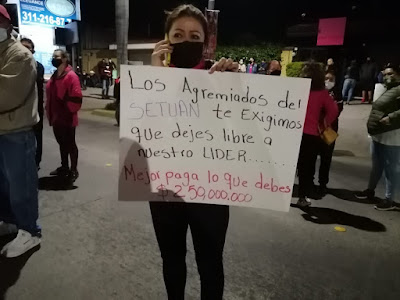 311-216-87
Los Agremiados del
SETUAN te EXigimos
que dejes libre a
nuestro LIDER.......
Mejor paga lo que debes
$ 250,000.000